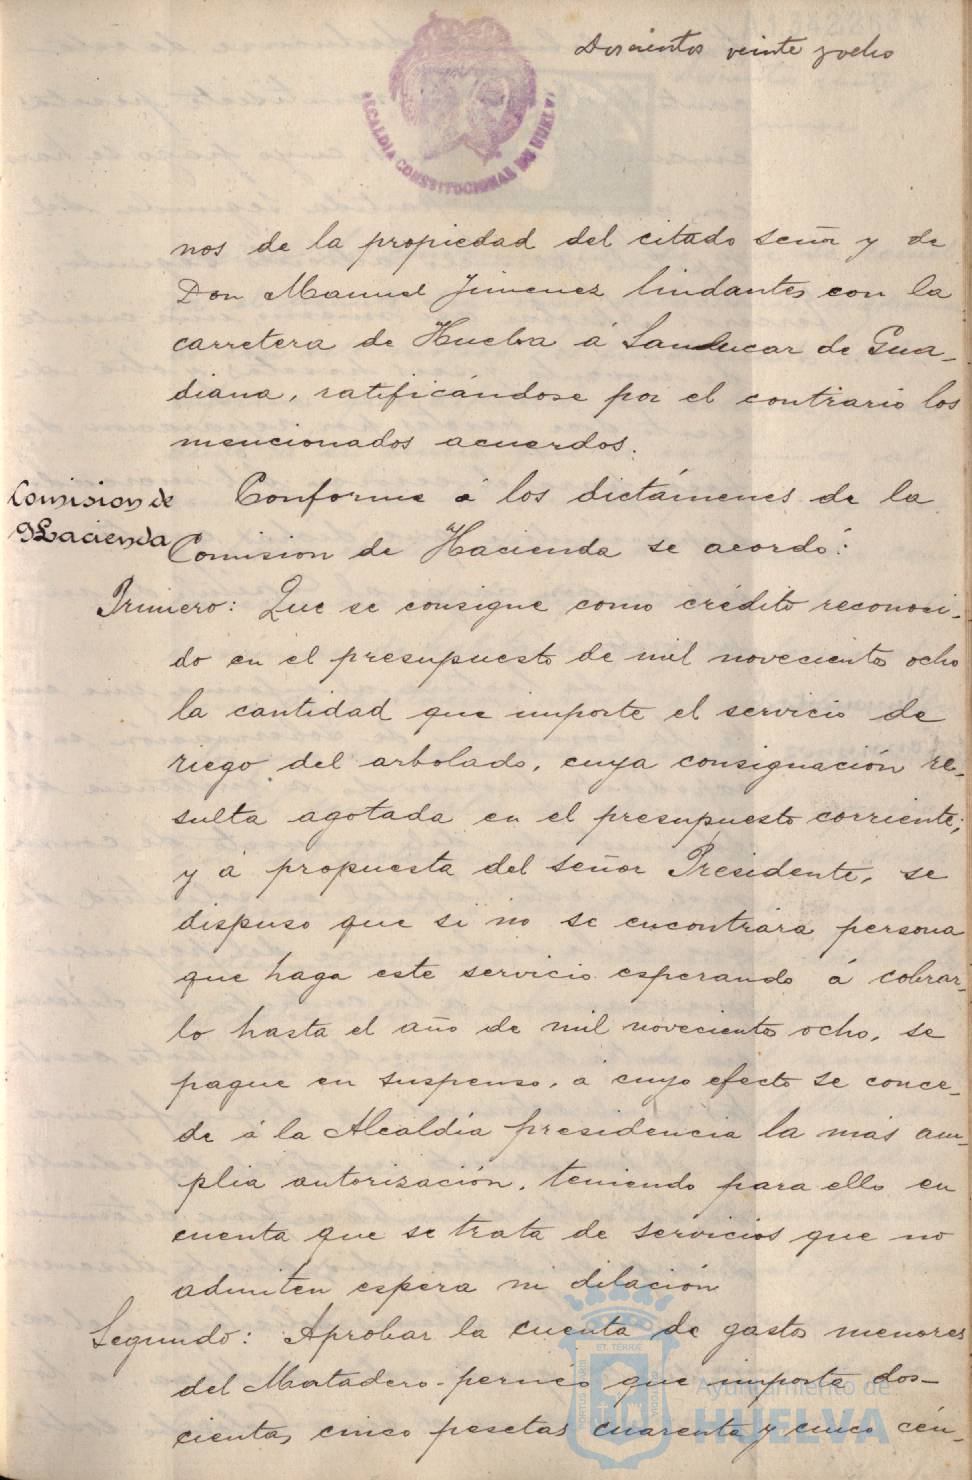 Doscientos veinte y ocho
ALCALDIA CONSTITUCIONAL DE HUELVA
nos de la propiedad del citado señor y de
Don Manuel Jimenez lindantes con la
carretera de Huelva á Sanlucar de Gua-
diana, ratificándose por el contrario los
mencionados acuerdos.
Comision de
Hacienda
Conforme á los dictámenes de la
Comision de Hacienda se acordó:
Primero: Que se consigne como crédito reconoci-
do en el presupuesto de mil novecientos ocho
la cantidad que importe el servicio de
riego del arbolado, cuya consignación re-
sulta agotada en el presupuesto corriente;
y á propuesta del señor Presidente, se
dispuso que si no se encontrára persona
que haga este servicio esperando á cobrar-
lo hasta el año de mil novecientos ocho, se
pague en suspenso, á cuyo efecto se conce-
de á la Alcaldía presidencia la más am-
plia autorización, teniendo para ello en
cuenta que se trata de servicios que no
admiten espera ni dilación
Segundo: Aprobar la cuenta de gastos menores
del Matadero-pernéo que importa dos-
cientas cinco pesetas cuarenta y cinco cén-
Ayuntamiento de
HUELVA